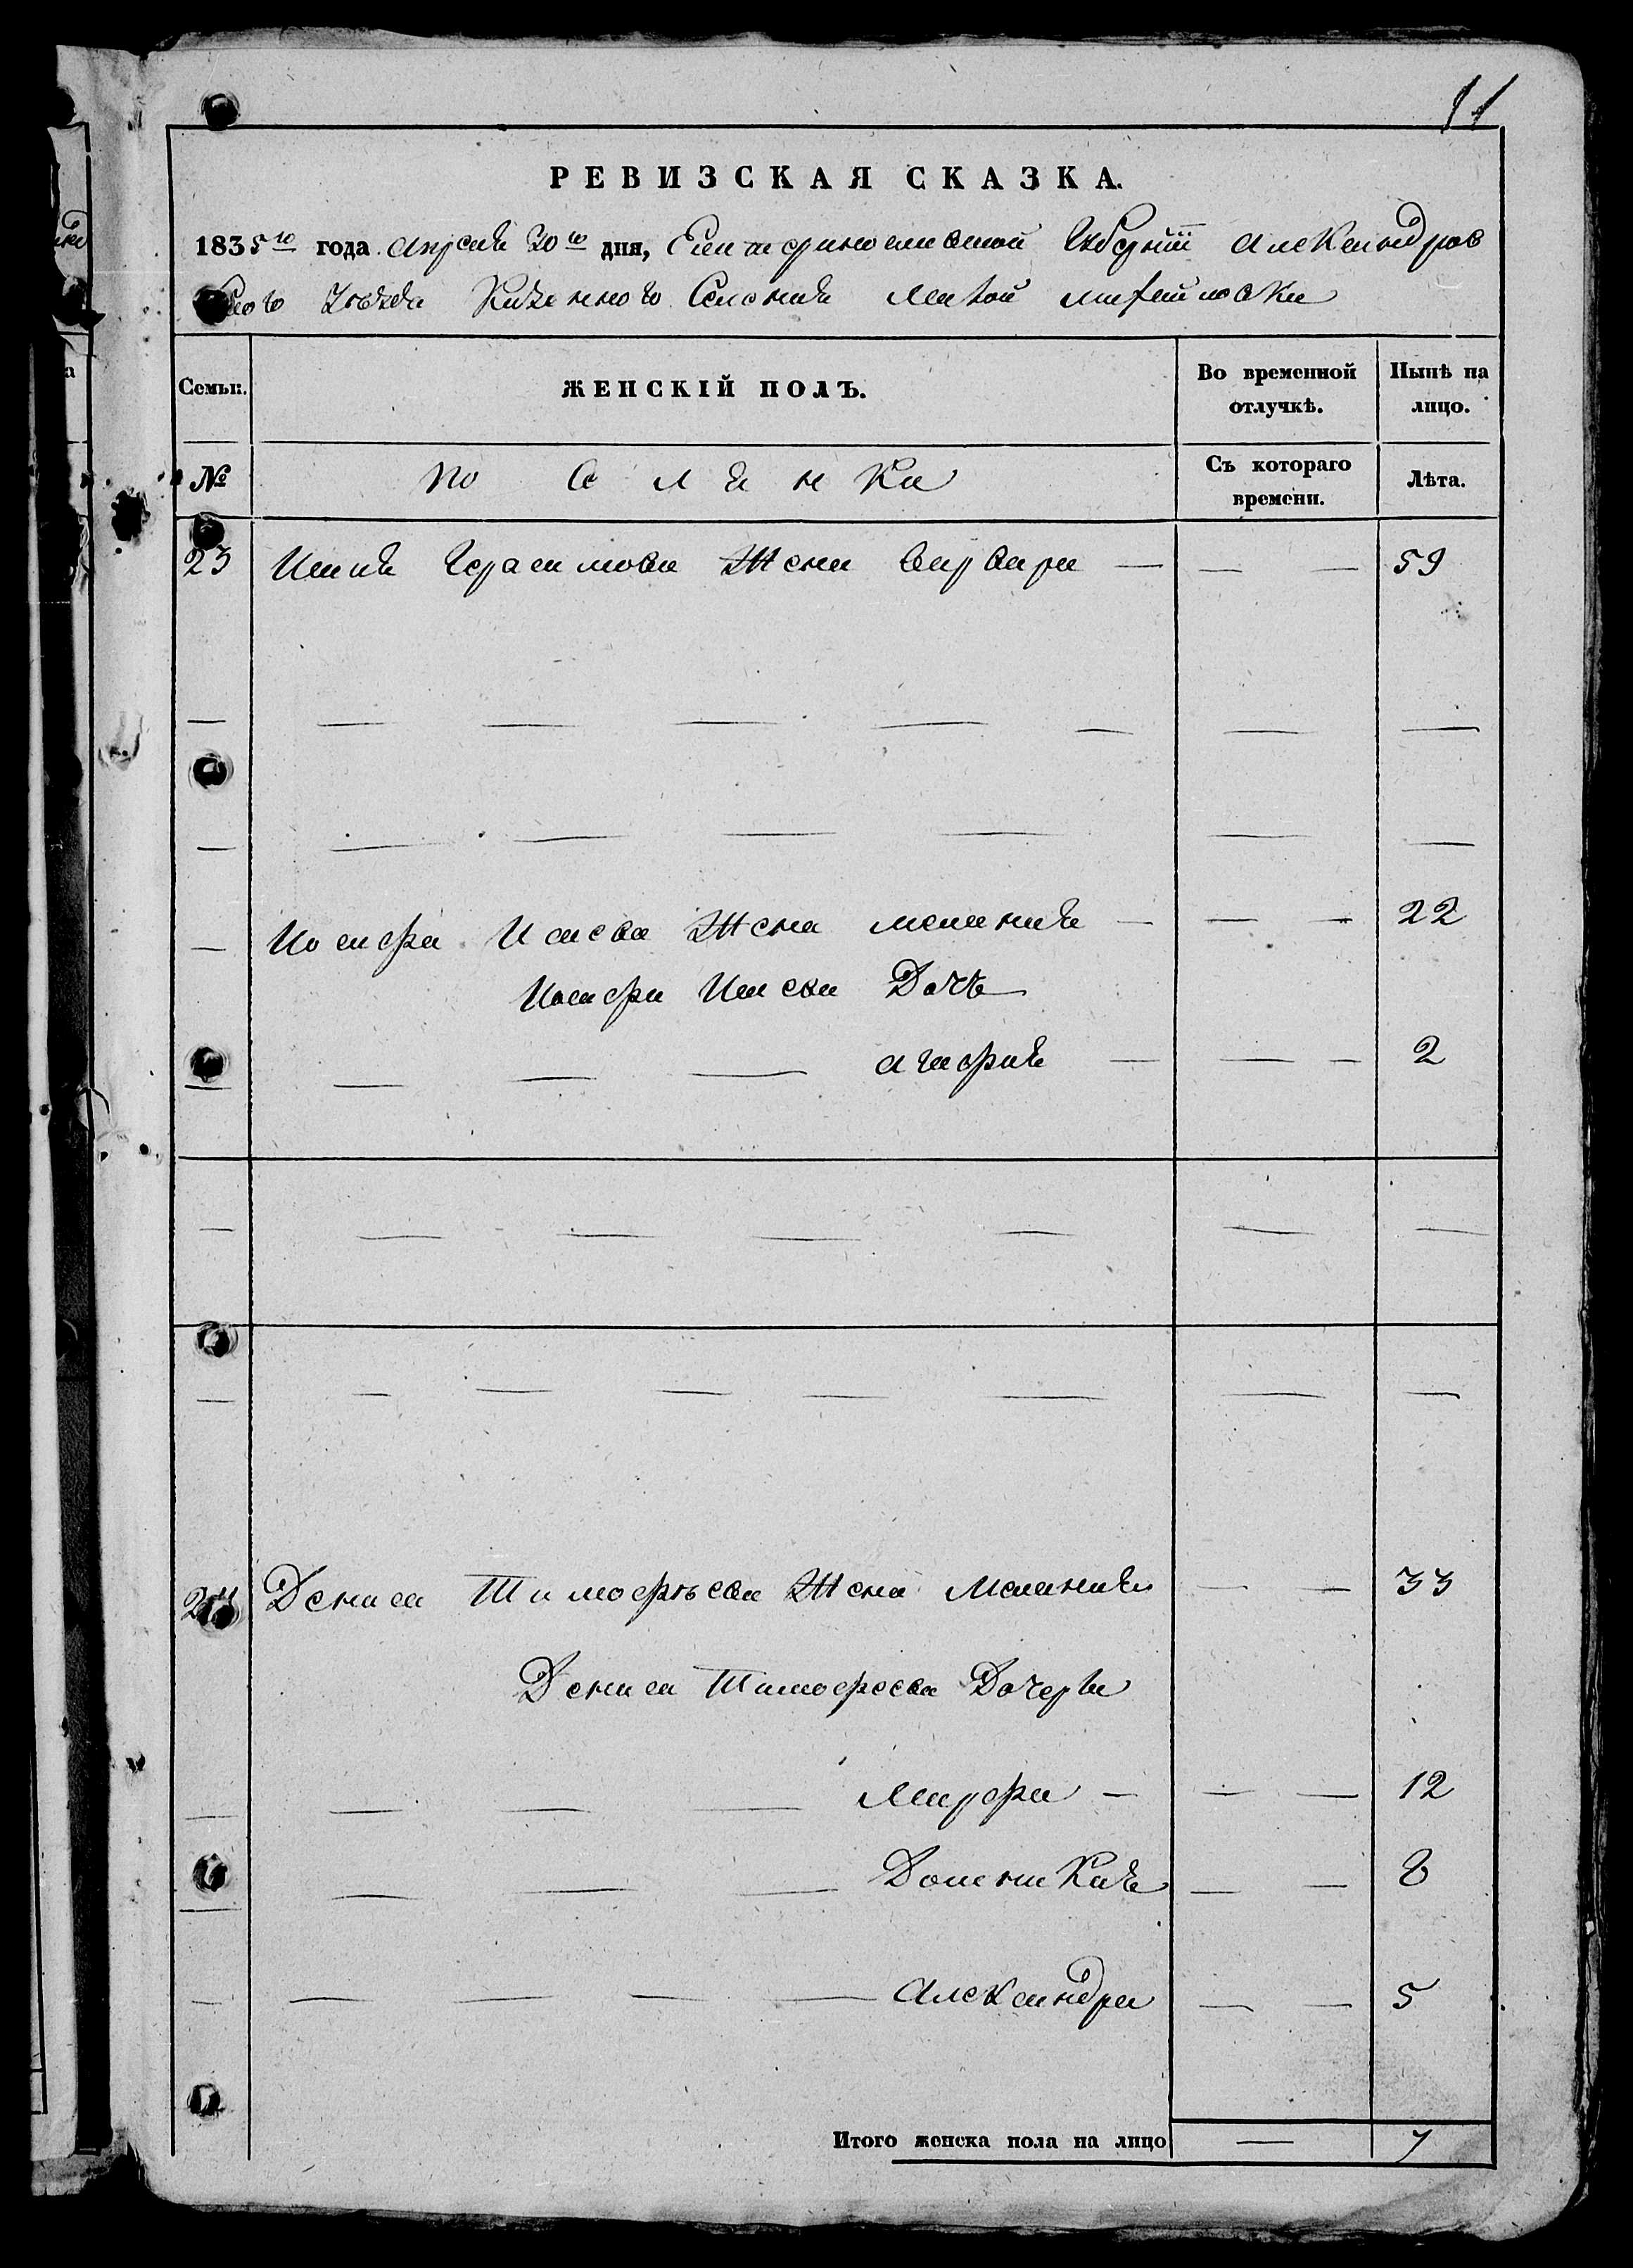 11
РЕВИЗСКАЯ СКАЗКА.
1835го года Апреля 30го дня, Екатеринославской Губернии Александров
ского Уезда Казенного Селения Малой Михайловки
Семьи. ЖЕНСКІЙ ПОЛЪ. Во временной отлучкѣ. Нынѣ на лицо.
№ поселянка Съ котораго времени. Лѣта.
23 Герасимова Жена Варвара — — — 59
— — — — — — — —
— — — — — — —
— Исаева Жена Мелания — — — 22
Исаева Дочь
— — — — Агафия — — — 2
— — — — — — —
— — — — — — — —
24 Дениса Тимофѣева Жена Мелания — — 33
Дениса Тимофеева Дочери
— — — — Марфа — — — 12
— — — Доменикия — — 8
— — — — — Александра — — 5
Итого женска пола на лицо — 7